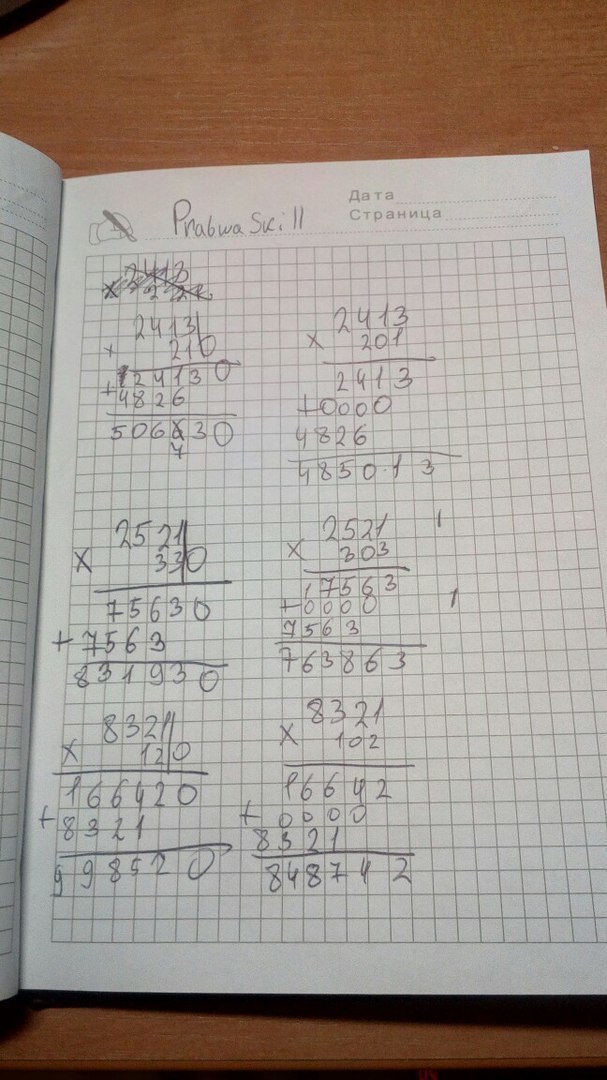 Дата
Страница
PrabwaSkill
2413
x 210
24130
+4826
506730
2413
x 201
2413
+0000
4826
485013
2521
x 330
75630
+7563
831930
2521
x 303
7563
+0000
7563
763863
8321
x 120
166420
+8321
998520
8321
x 102
16642
+0000
8321
848742